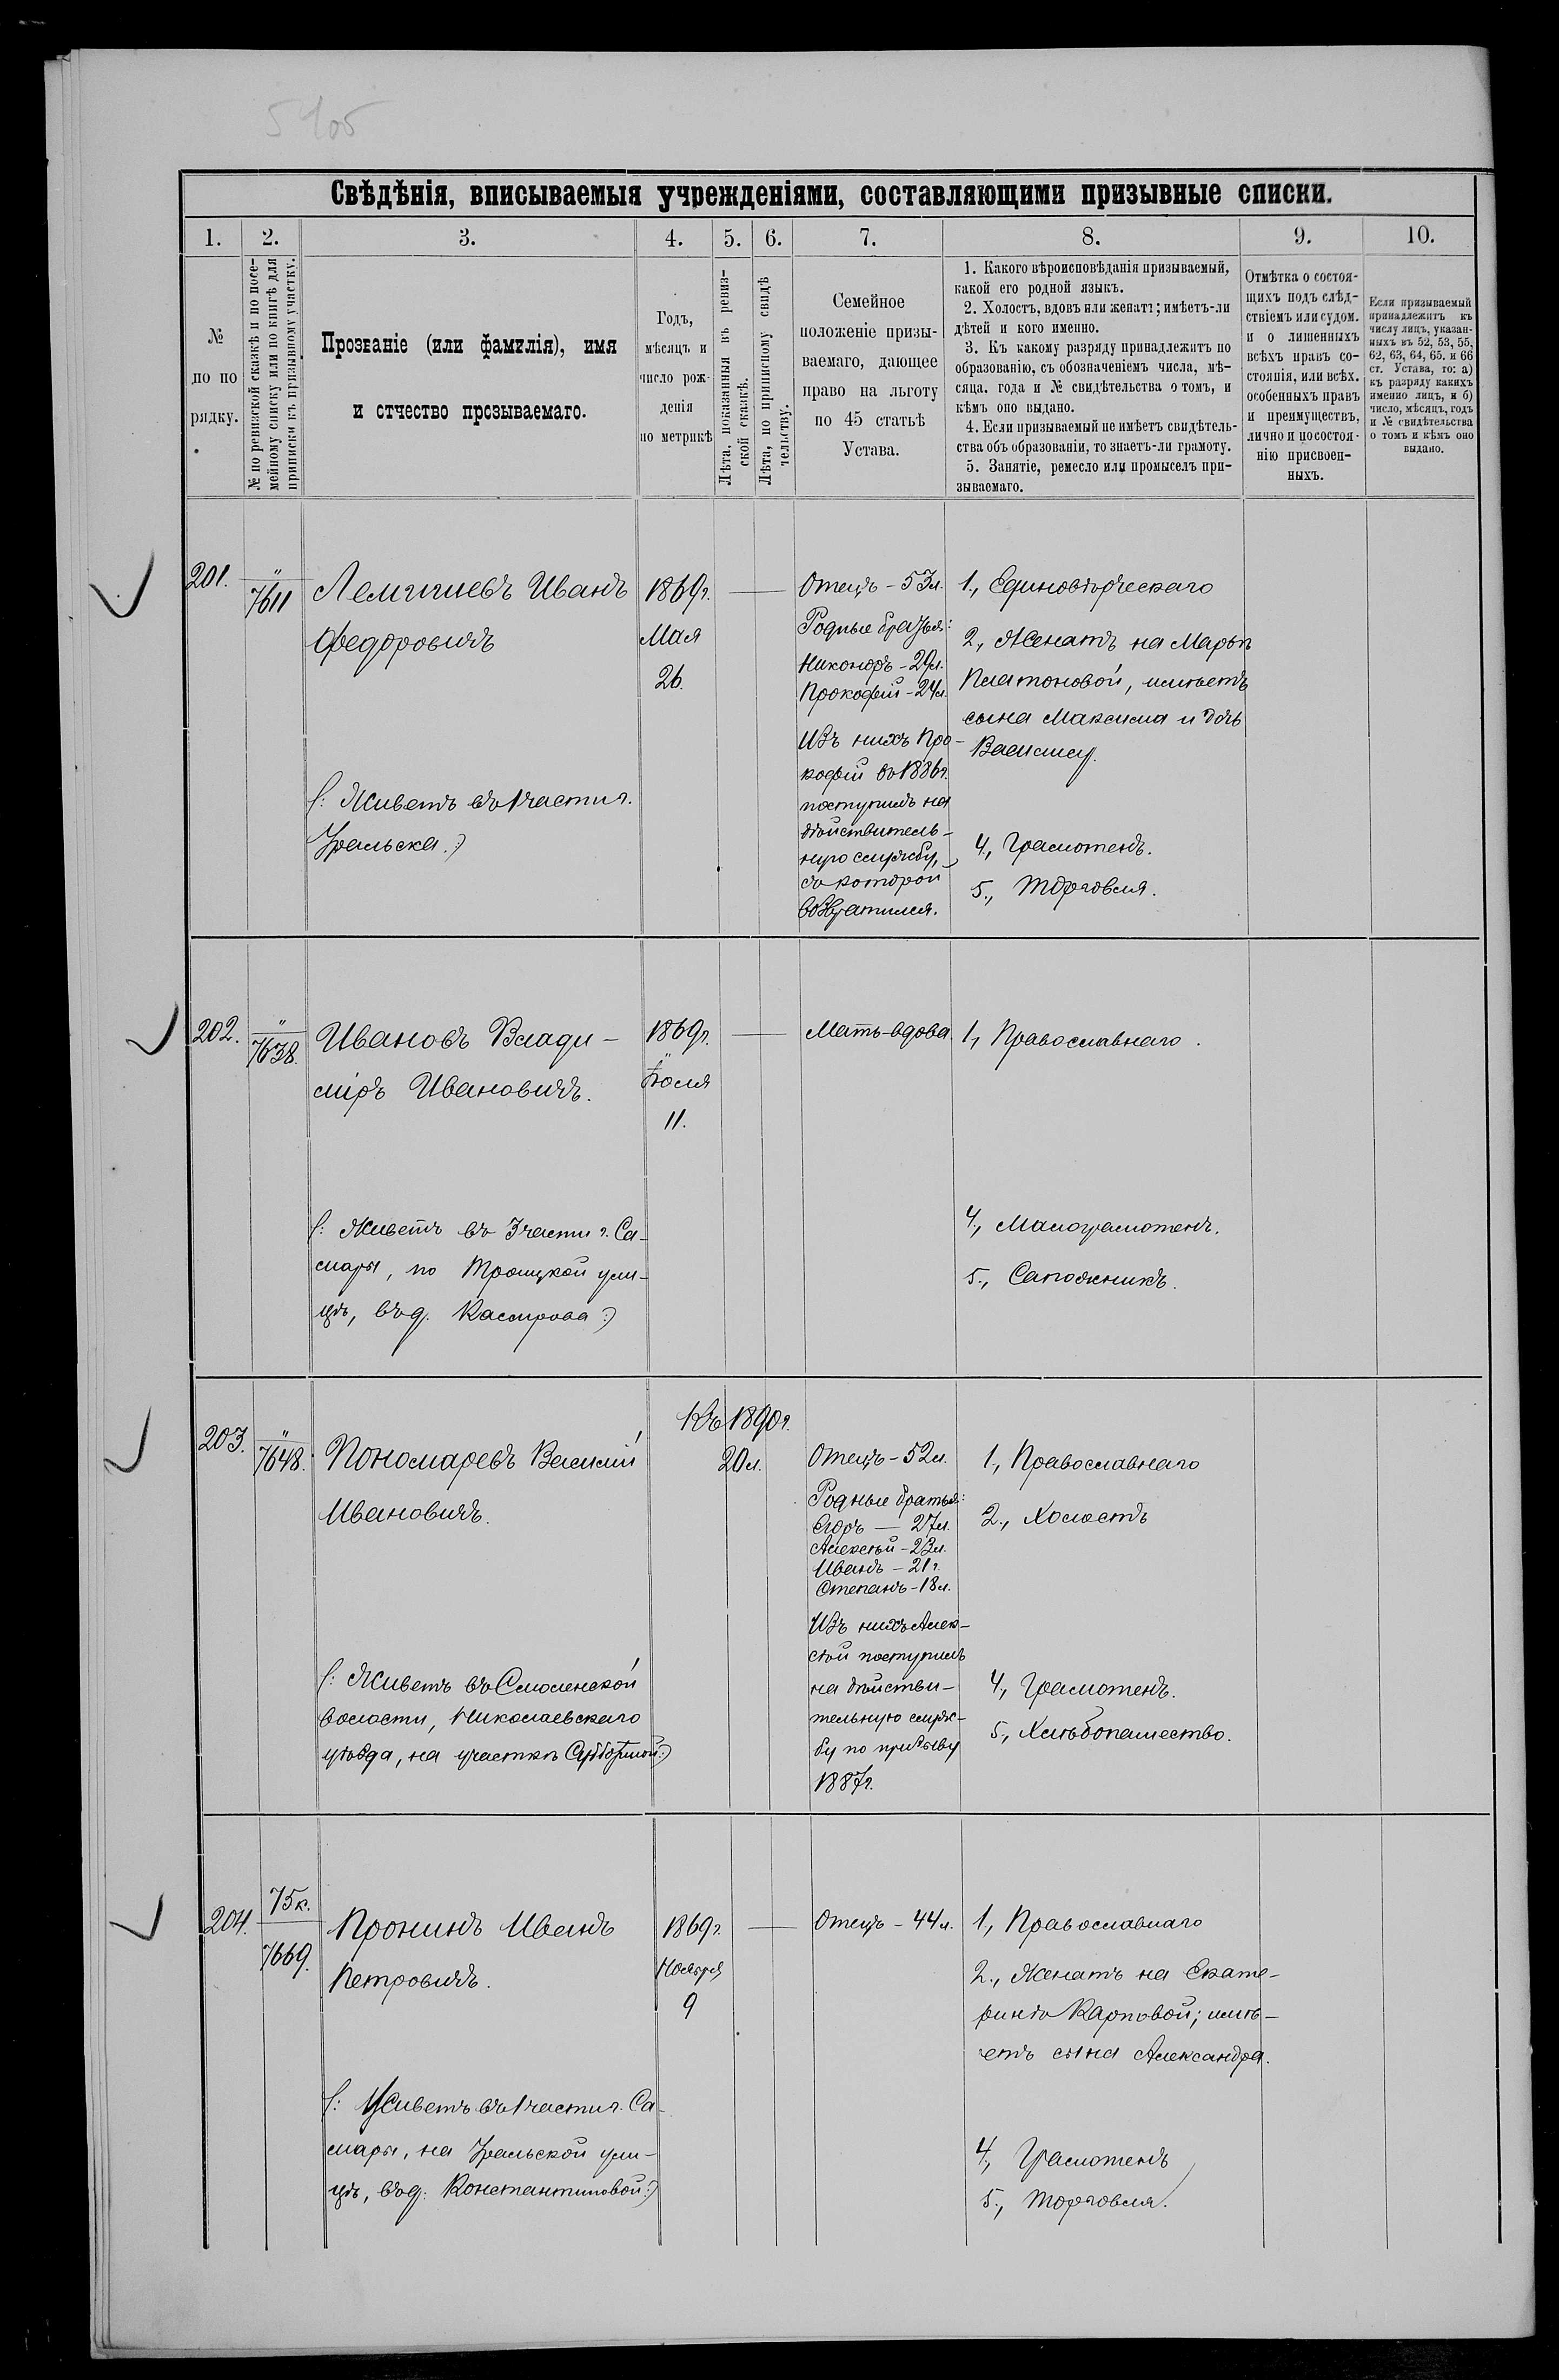 Свѣдѣнія, вписываемыя учрежденіями, составляющими призывные списки.
1. 2. 3. 4. 5. 6. 7. 8. 9. 10.
№
по по
рядку.
№ по ревизской сказкѣ и по посе-
мейному списку или по книгѣ для
приписки къ призывному участку.
Прозваніе (или фамилія), имя
и отчество прозываемаго.
Годъ,
мѣсяцъ и
число рож-
денія
по метрикѣ
Лѣта, показанныя въ ревиз-
ской сказкѣ.
Лѣта, по приписному свидѣ
тельству.
Семейное
положеніе призы-
ваемаго, дающее
право на льготу
по 45 статьѣ
Устава.
1. Какого вѣроисповѣданія призываемый,
какой его родной языкъ.
2. Холостъ, вдовъ или женатъ; имѣетъ-ли
дѣтей и кого именно.
3. Къ какому разряду принадлежитъ по
образованію, съ обозначеніемъ числа, мѣ-
сяца, года и № свидѣтельства о томъ, и
кѣмъ оно выдано.
4. Если призываемый не имѣетъ свидѣтель-
ства объ образованіи, то знаетъ-ли грамоту.
5. Занятіе, ремесло или промыселъ при-
зываемаго.
Отмѣтка о состоя-
щихъ подъ слѣд-
ствіемъ или судом.
и о лишенныхъ
всѣхъ правъ со-
стоянія, или всѣх.
особенныхъ правъ
и преимуществъ,
лично и по состоя-
нію присвоен-
ныхъ.
Если призываемый
принадлежитъ къ
числу лицъ, указан-
ныхъ въ 52, 53, 55,
62, 63, 64, 65. и 66
ст. Устава, то: а)
къ разряду какихъ
именно лицъ, и б)
число, мѣсяцъ, годъ
и № свидѣтельства
о томъ и кѣмъ оно
выдано.
201.
"
7611
Иванъ
Федоровичъ
(: Живетъ въ 1 части г.
Уральска :)
1869 г.
Мая
26.
Отецъ - 53 л.
Родные братья:
Никоноръ - 29 л.
Прокофій - 24 л.
Изъ нихъ Про-
кофій въ 1886 г.
поступилъ на
дѣйствитель-
ную службу,
съ которой
возвратился.
1., Единовѣрческаго
2., Женатъ на Марьѣ
Платоновой, имѣетъ
сына Максима и дочь
4., Грамотенъ.
5., Торговля.
202.
"
7638.
Ивановъ Влади-
міръ Ивановичъ.
(: Живетъ въ 3 части г. Са-
мары, по Троицкой ули-
цѣ, въ д. Кассирова :)
1869 г.
Іюля
11.
Мать-вдова
1., Православнаго.
4., Малограмотенъ.
5., Сапожникъ.
203.
"
7648.
Пономаревъ Василій
Ивановичъ.
(: Живетъ въ Смоленской
волости, Николаевскаго
уѣзда, на участкѣ Субботиной :)
Къ 1890 г.
20 л.
Отецъ - 52 л.
Родные братья:
Егоръ — 27 л.
Алексѣй - 23 л.
Иванъ - 21 г.
Степанъ - 18 л.
Изъ нихъ Алек-
сѣй поступилъ
на дѣйстви-
тельную служ-
бу по призыву
1887 г.
1., Православнаго
2., Холостъ
4., Грамотенъ.
5., Хлѣбопашество.
204.
75 к.
7669.
Пронинъ Иванъ
Петровичъ.
(: Живетъ въ 1 части г. Са-
мары, на Уральской ули-
цѣ, въ д. Константиновой :)
1869 г.
Ноября
9
Отецъ - 44 л.
1., Православнаго
2., Женатъ на Екате-
ринѣ Карповой; имѣ-
етъ сына Александра.
4., Грамотенъ
5., Торговля.